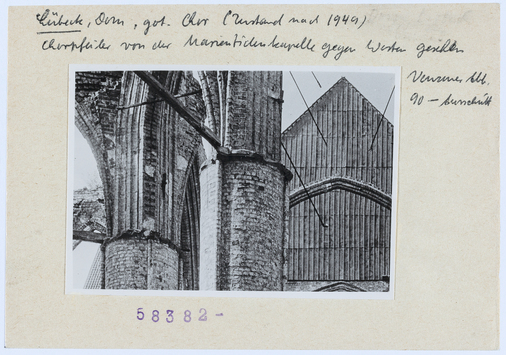 Lübeck, Dom, got. Chor (Zustand nach 1949)
Chorpfeiler von der Marientidenkapelle gegen Westen gesehen
Venzmer Abb.
90 - Ausschnitt
58382-